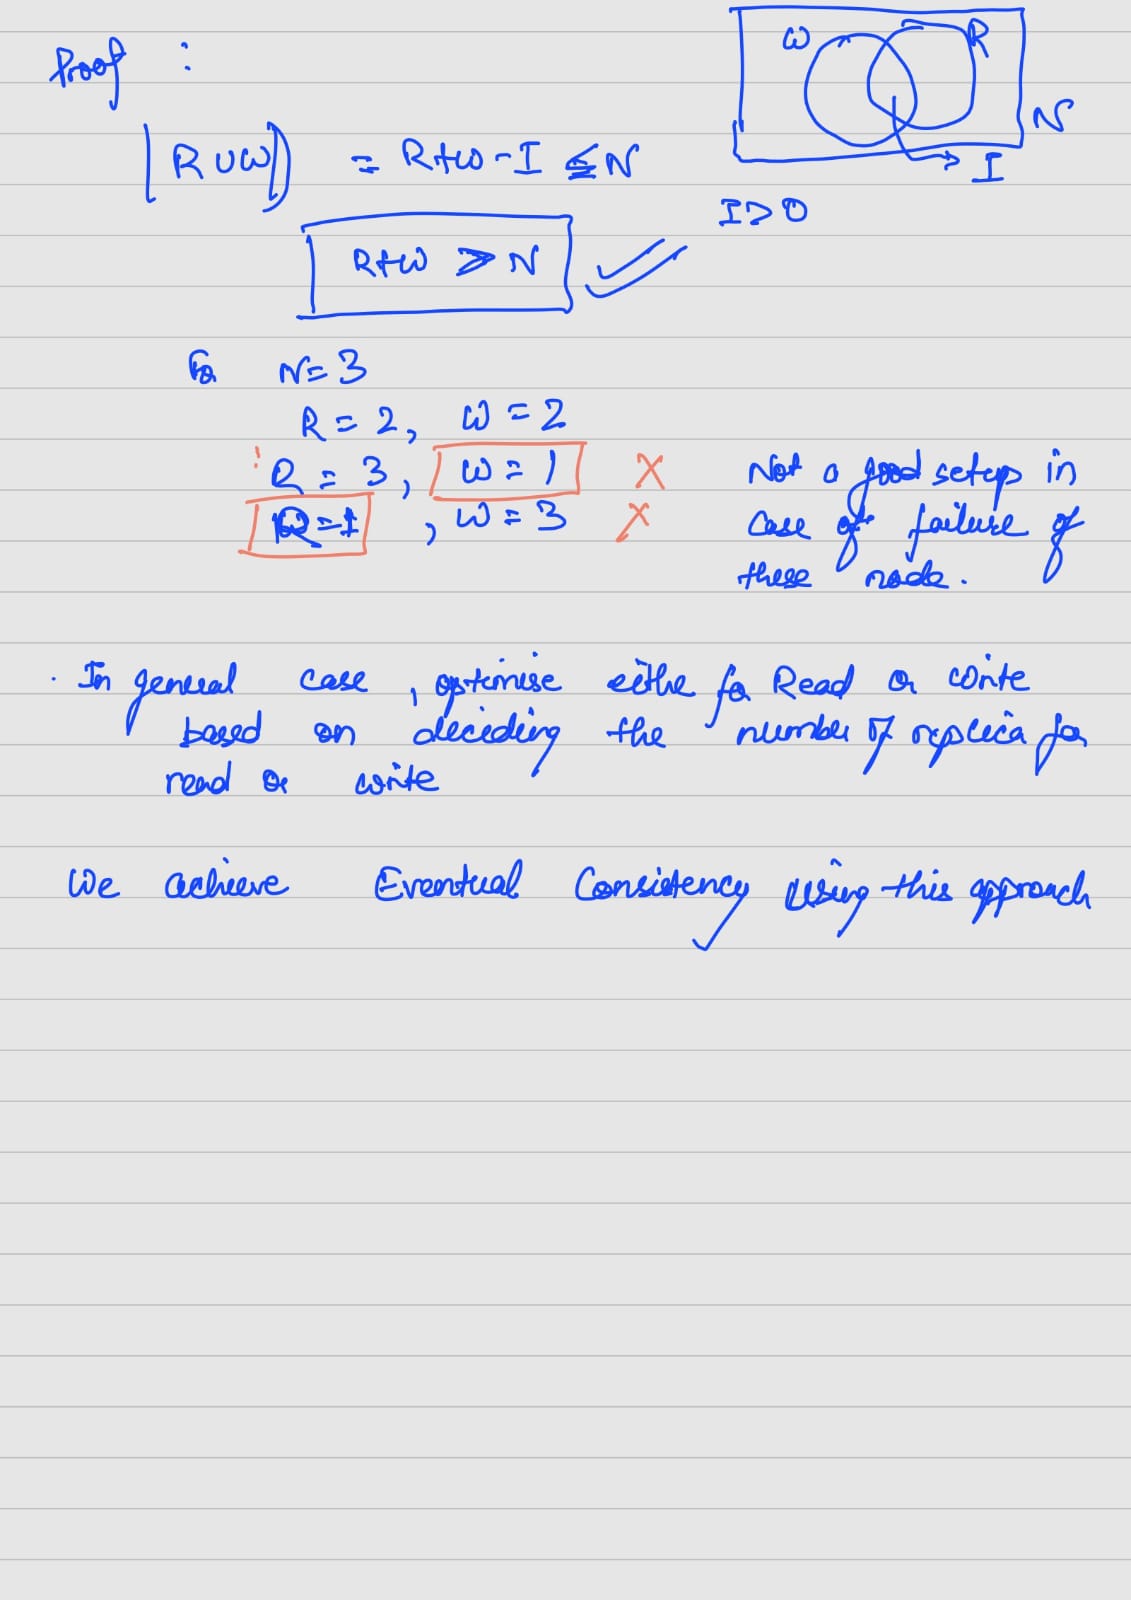 Proof :
W R
N
I
|R ∪ W| = R+W-I ≤ N
I>0
R+W > N
For N=3
R=2, W=2
R=3, W=1 X Not a good setups in
R=1, W=3 X case of failure of
these node.
. In general case, optimise either for Read or Write
based on deciding the number of replica for
read or write
We achieve Eventual Consistency using this approach